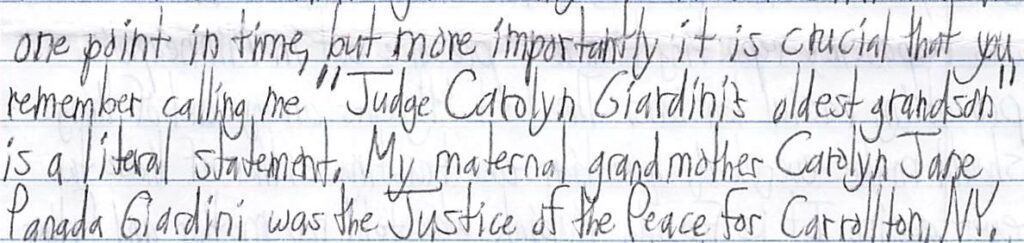 one point in time, but more importantly it is crucial that you
remember calling me "Judge Carolyn Giardini's oldest grandson"
is a literal statement. My maternal grandmother Carolyn Jane
Panada Giardini was the Justice of the Peace for Carrollton, NY.